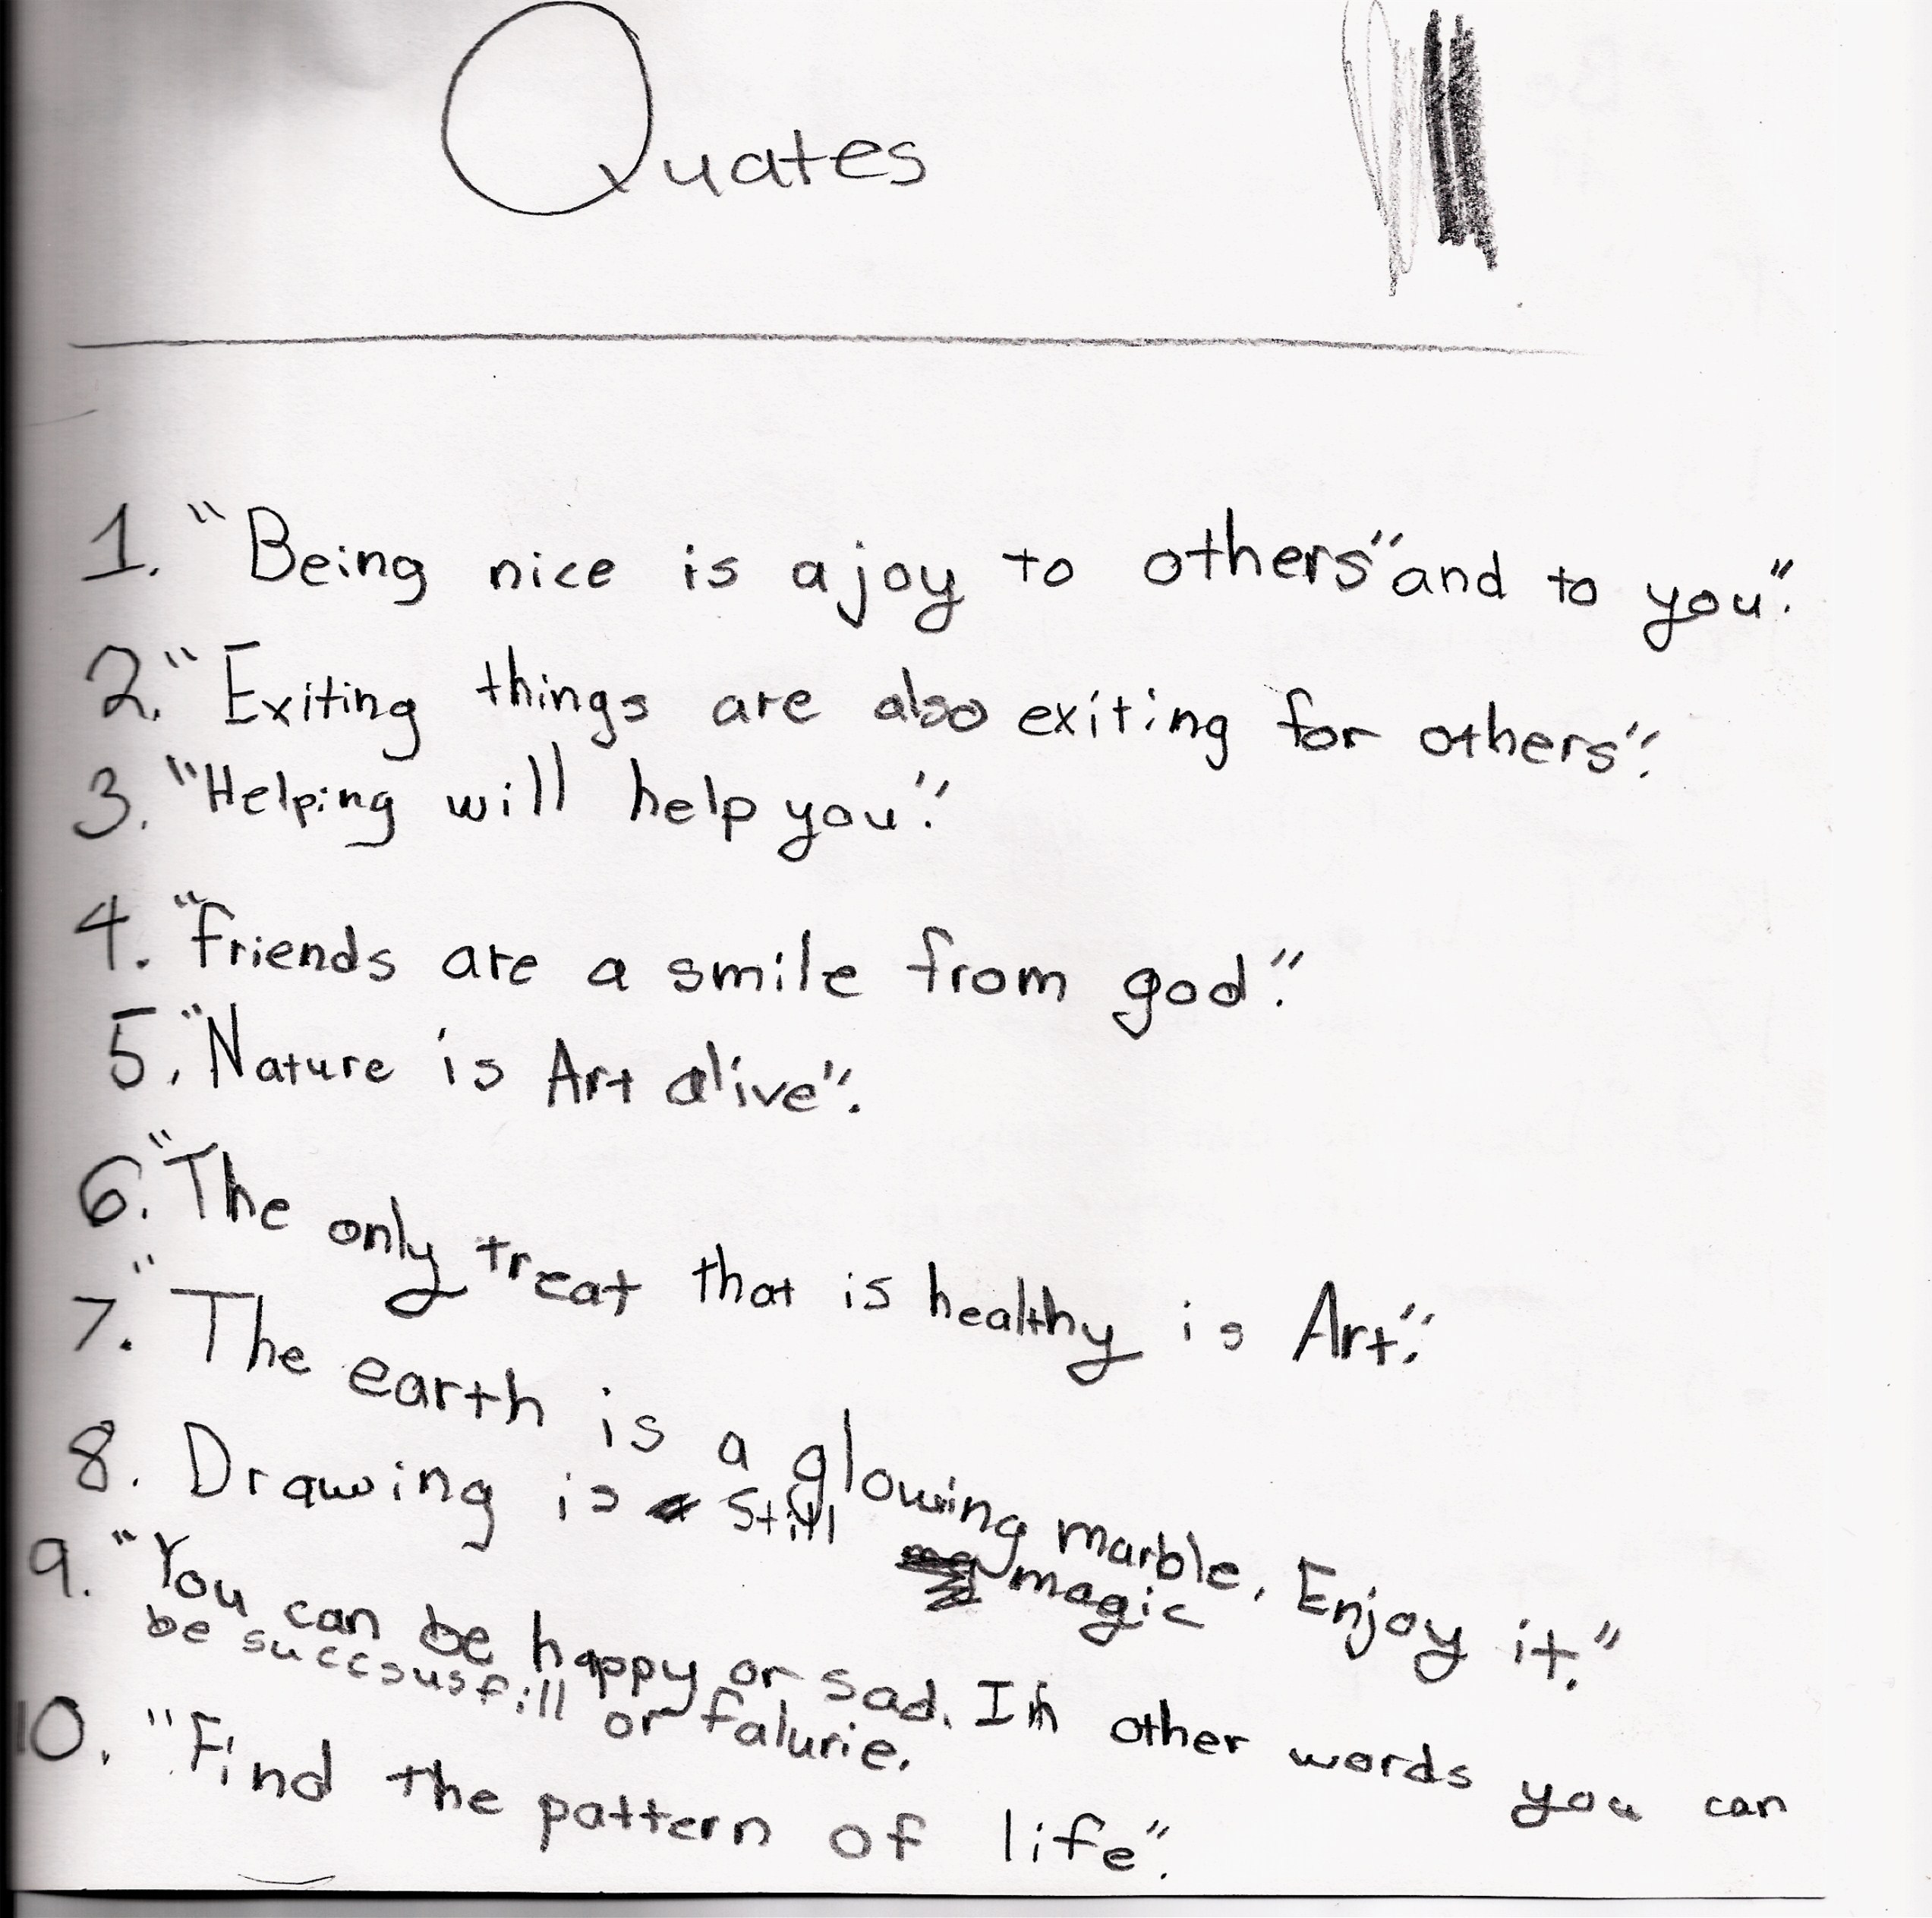 Quates
1. "Being nice is a joy to others" and to you".
2. "Exiting things are also exiting for others".
3. "Helping will help you".
4. "friends are a smile from god".
5. "Nature is Art alive".
6. "The only treat that is healthy is Art".
7. "The earth is a glowing marble. Enjoy it."
8. Drawing is still magic
9. "You can be happy or sad. In other words you can
be succsusfill or falurie.
10. "Find the pattern of life".